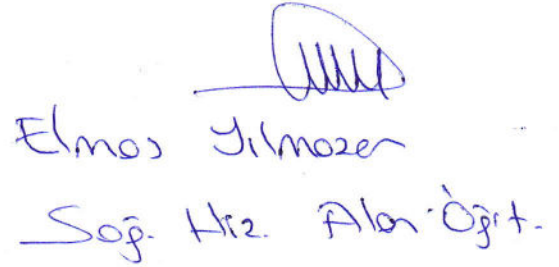 Elmas Yılmazer
Sağ. Hiz. Alan Öğrt.